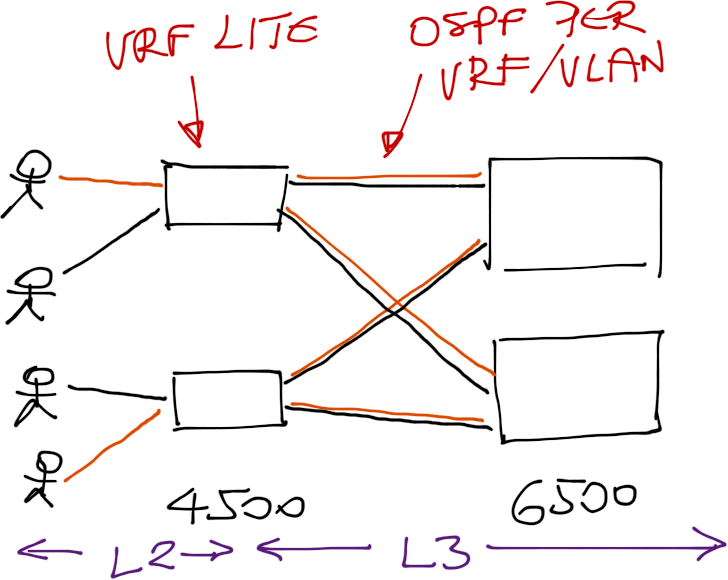 VRF LITE
OSPF PER
VRF/VLAN
4500
6500
L2
L3